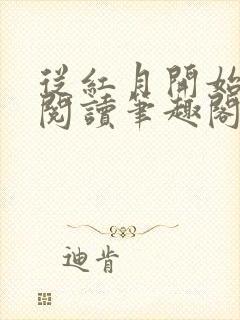 從紅月開始
閱讀筆趣閣
迪肯